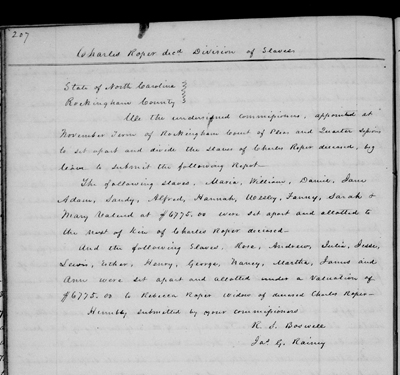 207
Charles Roper decd Division of Slaves
State of North Carolina
Rockingham County
We the undersigned commissioners, appointed at
November Term of Rockingham Court of Pleas and Quarter Sessions
to set apart and divide the slaves of Charles Roper deceased, beg
leave to submit the following Report—
The following slaves, Maria, William, Daniel, Jane
Adam, Sandy, Alfred, Hannah, Weslly, Fanny, Sarah +
Mary Valued at $6775.00 were set apart and allotted to
the next of kin of Charles Roper deceased—
And the following Slaves, Rose, Andrew, Julia, Jesse,
Lewis, Esther, Henry, George, Nancy, Martha, James and
Ann were set apart and allotted under a valuation of
$6775.00 to Rebecca Roper widow of deceased Charles Roper—
Humbly submitted by your commissioners
R. S. Boswell
Jas. G. Rainey